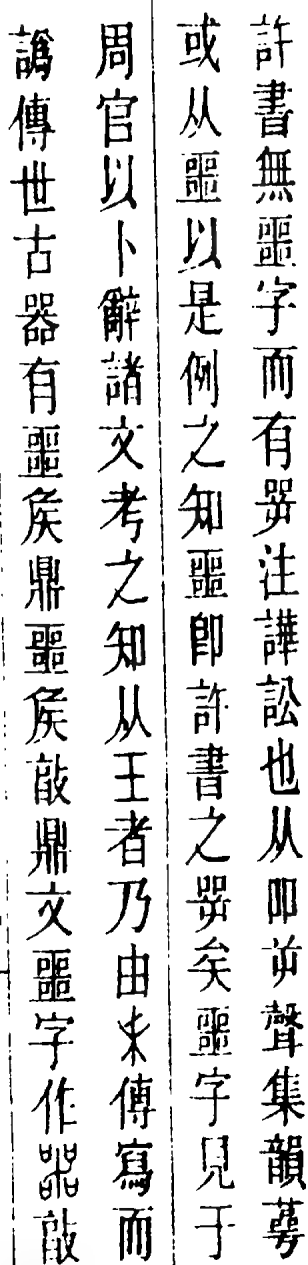 許書無噩字而有咢注譁訟也从吅屰聲集韻蕚
或从噩以是例之知噩卽許書之咢矣噩字見于
周官以卜辭諸文考之知从王者乃由𠱠傳寫而
譌傳世古器有噩矦鼎噩矦𣪘鼎文噩字作𣪘